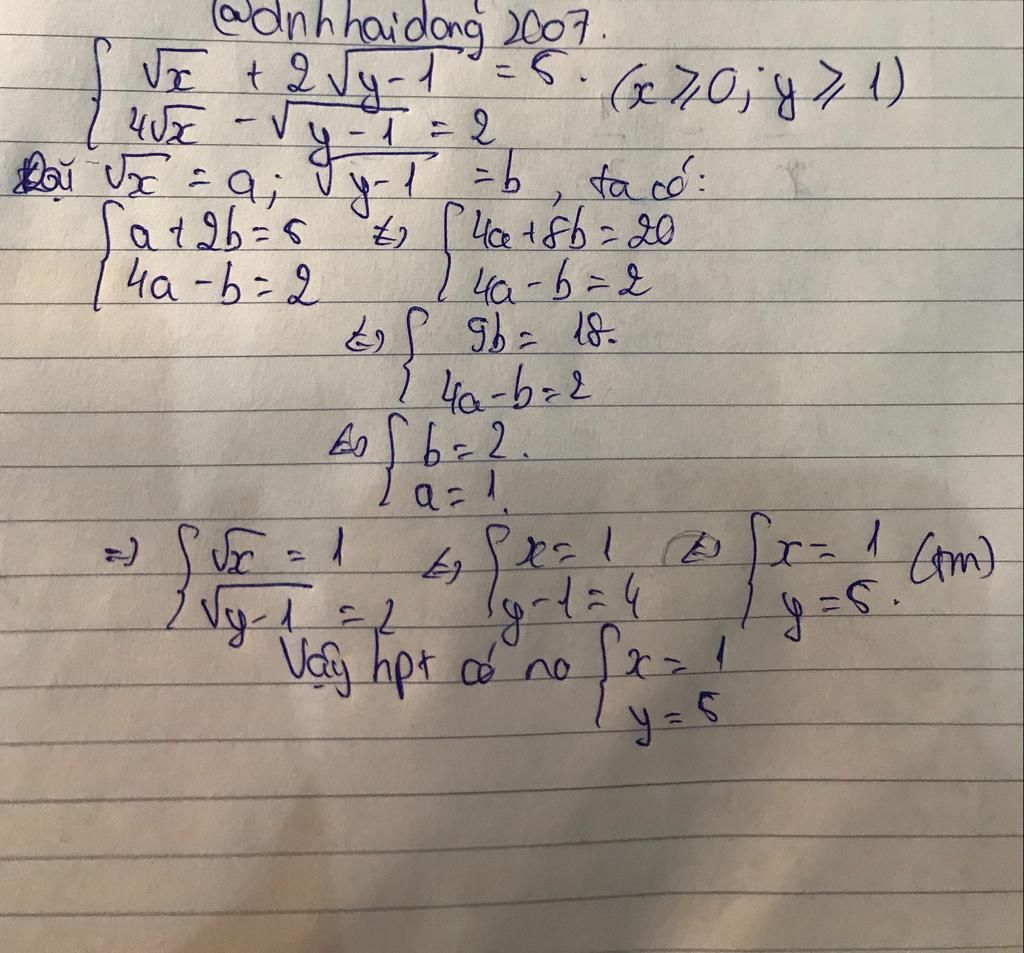 @dnhhaidong 2007.
{ √x + 2√(y-1) = 5. (x ≥ 0; y ≥ 1)
{ 4√x - √(y-1) = 2
Đặt √x = a; √(y-1) = b, ta có:
{ a + 2b = 5 <=> { 4a + 8b = 20
{ 4a - b = 2 { 4a - b = 2
<=> { 9b = 18.
{ 4a - b = 2
<=> { b = 2.
{ a = 1.
=> { √x = 1 <=> { x = 1 <=> { x = 1 (tm)
{ √(y-1) = 2 { y - 1 = 4 { y = 5.
Vậy hpt có no { x = 1
{ y = 5